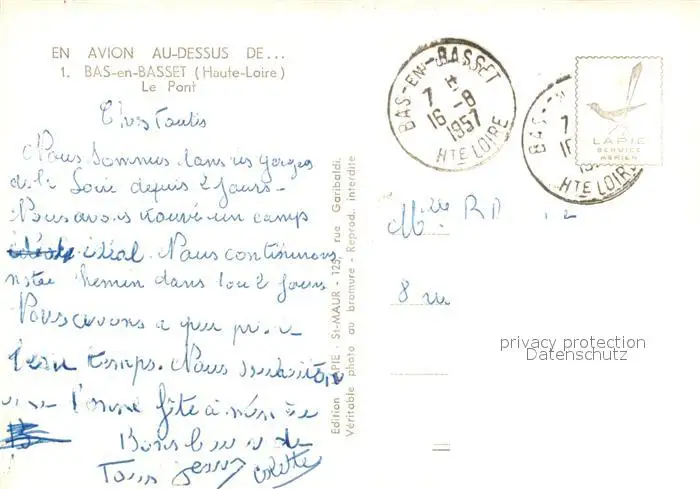 EN AVION AU-DESSUS DE...
1. BAS-en-BASSET (Haute-Loire)
Le Pont
Nous sommes dans les gorges
de la Loire depuis 2 jours -
Nous avons trouvé un camp
idéal. Nous continuerons
notre chemin dans 1 ou 2 jours
Nous avons a peu près
beau temps. Nous souhaitons
une bonne fête à
Bons baisers de
Tous
colette
Edition LAPIE - St-MAUR - 125, rue Garibaldi.
Véritable photo au bromure - Reprod. interdite
BAS-EN-BASSET
7 H
16-8
1957
HTE LOIRE
BAS-
7
1957
HTE LOIRE
LAPIE
SERVICE
AERIEN
Mlle
8 rue
privacy protection
Datenschutz